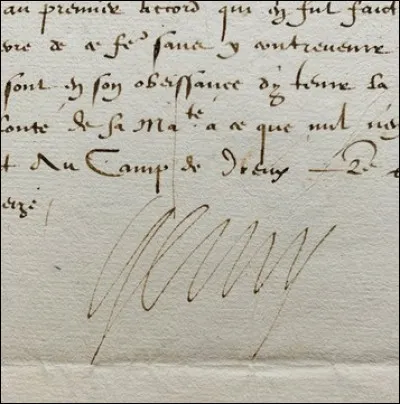 au premier accord qui en fut faict
vre de ce fe.^r sans y contrevenir
sont en son obeissance d'y tenir la
onté de sa Ma^té a ce que nul
t Au Camp de Dreux
Henry